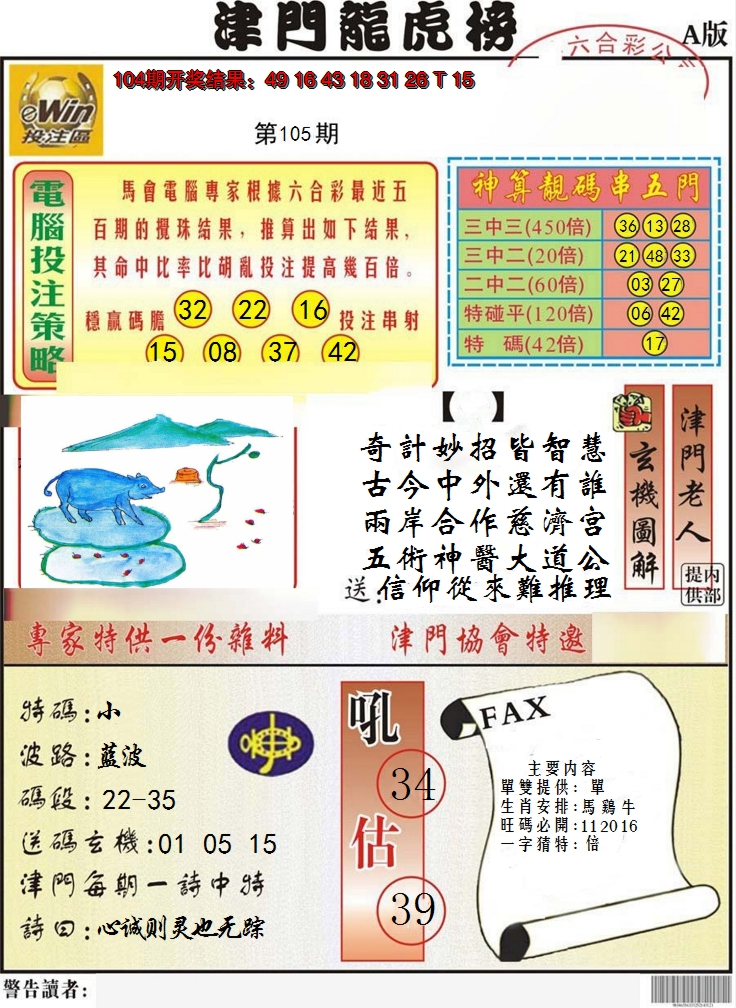 津門龍虎榜
A版
六合彩公
104期开奖结果：49 16 43 18 31 26 T 15
eWin
投注區
第105期
電腦投注策略
馬會電腦專家根據六合彩最近五
百期的攪珠结果，推算出如下结果，
其命中比率比胡亂投注提高幾百倍。
穩贏碼膽 32 22 16 投注串射
15 08 37 42
神算靚碼串五門
三中三(450倍) 36 13 28
三中二(20倍) 21 48 33
二中二(60倍) 03 27
特碰平(120倍) 06 42
特 碼(42倍) 17
【 】
奇計妙招皆智慧
古今中外還有誰
兩岸合作慈濟宮
五術神醫大道公
送:信仰從來難推理
玄機圖解
津門老人
内部提供
專家特供一份雜料
津門協會特邀
特碼:小
波路:藍波
碼段:22-35
送碼玄機:01 05 15
津門每期一詩中特
詩曰:心诚则灵也无踪
吼
34
估
39
FAX
主要内容
單雙提供: 單
生肖安排:馬鷄牛
旺碼必開:112016
一字猜特:倍
警告讀者: